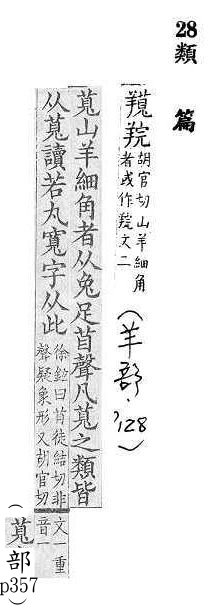 28
類篇
羱羦胡官切山羊細角
者或作羦文二
(羊部,128)
萈山羊細角者从兔足苜聲凡萈之類皆
从萈讀若丸寬字从此
徐鉉曰苜徒結切非
聲疑象形又胡官切
文一重
音一
(萈部
p357)